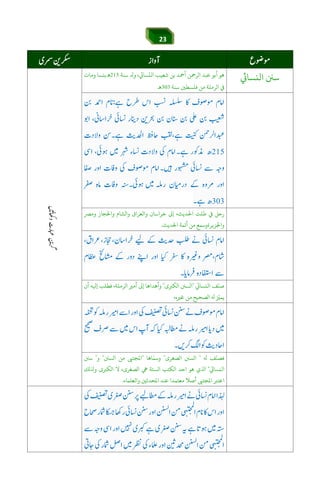 23
موضوع
آواز
سکرین سمری
سنن النسائي
هو أبو عبد الرحمن أحمد بن شعيب النسائي، ولد سنة 215ھ بنسا ومات
في الرملة من فلسطين سنة 303ھ
امام موصوف کا سلسلہ نسب اس طرح ہے:امام احمد بن
شعیب بن علی بن سنان بن بحر بن دینار نسائی خراسانی، ابو
عبدالرحمن کنیت ہے،لقب حافظ الحدیث ہے۔ سن ولادت
215ھ مذکور ہے۔امام کی ولادت نسائی شہر میں ہوئی، اسی
وجہ سے نسائی مشہور ہیں۔امام موصوف کی وفات اور صفا
اور مروہ کے درمیان مکہ میں ہوئی۔سنہ وفات ماہ صفر
303ھ ہے۔
رحل في طلب الحديث، إلى خراسان والعراق والشام والحجاز ومصر
والجزيرة وسمع من أئمة الحديث.
امام نسائی نے طلب حدیث کے لیے خراسان، حجاز، عراق،
شام، مصر وغیرہ کا سفر کیا اور اپنے دور کے مشائخ عظام
سے استفادہ فرمایا۔
صنف النسائي "السنن الكبرى" وأهداها إلى أمير الرملة، فطلب إليه أن
يميز له الصحيح من غيره؛
امام موصوف نے سنن نسائی تصنیف کی اور اسے امیر رملہ کو تحفہ
میں دیا امیر رملہ نے مطالبہ کیا کہ آپ اس میں سے صرف صحیح
احادیث کو الگ کریں۔
فصنف له " السنن الصغرى" وسماها "المجتبى من السنن" و" سنن
النسائي" الذي هو احد الكتب الستة هي الصغرى، لا الكبرى وكذلك
اعتبر المجتبى أصلا معتمدا عند المحدثين والعلماء.
لہذا امام نسائی نے امیر رملہ کے مطالبے پر سنن صغری تصنیف کی
اور اس کا نام المجتبیٰ من السنن اور سنن نسائی رکھا، جس کا شمار صحاح
ستہ میں ہوتا ہے یہ سنن صغریٰ ہے کبریٰ نہیں اور اسی وجہ سے
المجتبیٰ من السنن محدثین اور علماء کی نظر میں اصل شمار کی جاتی